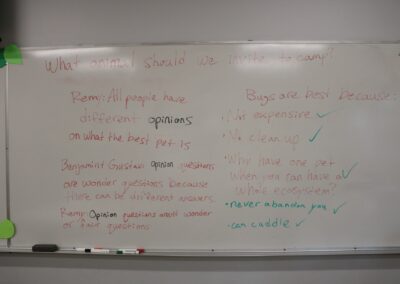 What animal should we invite to camp?
Remy: All people have
different opinions
on what the best pet is
Benjamin + Gustav: opinion questions
are wonder questions because
there can be different answers.
Remy: Opinion questions wonder
or fair questions
Bugs are best because:
• Not expensive ✓
• No clean up ✓
• Why have one pet
when you can have a ✓
whole ecosystem?
• never abandon you ✓
• can cuddle ✓